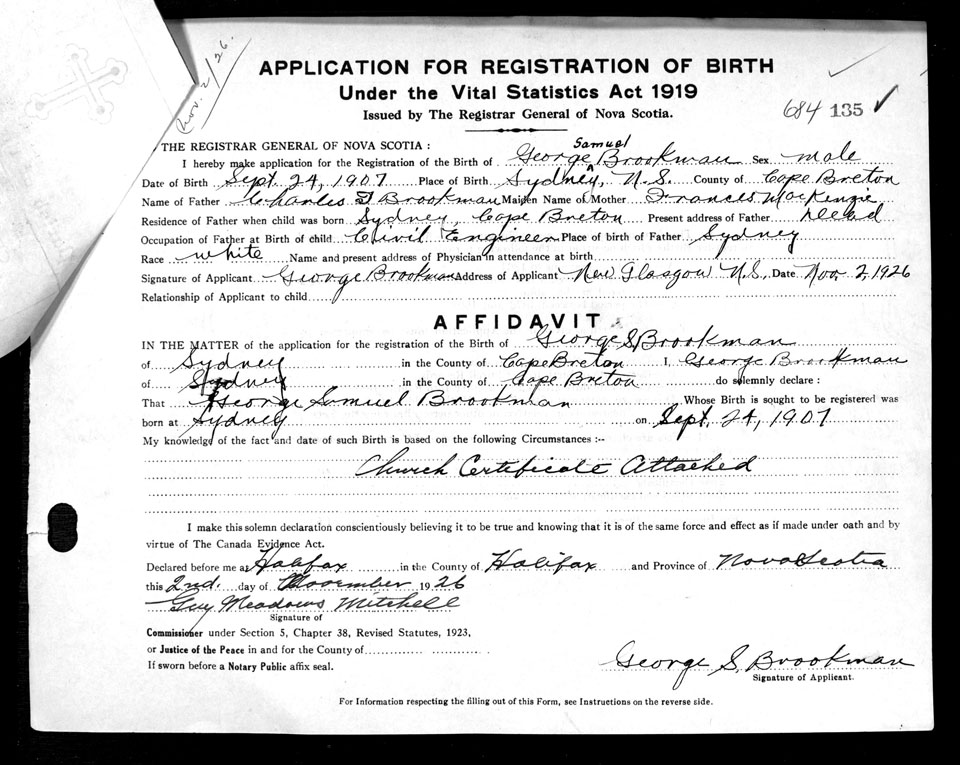 Nov. 2/26.
APPLICATION FOR REGISTRATION OF BIRTH
Under the Vital Statistics Act 1919
Issued by The Registrar General of Nova Scotia.
684 135 ✓
THE REGISTRAR GENERAL OF NOVA SCOTIA :
Samuel
I hereby make application for the Registration of the Birth of George ^ Brookman Sex male
Date of Birth Sept. 24, 1907 Place of Birth Sydney, N.S. County of Cape Breton
Name of Father Charles Brookman Maiden Name of Mother Frances MacKenzie
Residence of Father when child was born Sydney, Cape Breton Present address of Father Dead
Occupation of Father at Birth of child Civil Engineer Place of birth of Father Sydney
Race white Name and present address of Physician in attendance at birth
Signature of Applicant George Brookman Address of Applicant New Glasgow N.S. Date Nov. 2, 1926
Relationship of Applicant to child
AFFIDAVIT
IN THE MATTER of the application for the registration of the Birth of George S Brookman
of Sydney in the County of Cape Breton I, George Brookman
of Sydney in the County of Cape Breton do solemnly declare :
That George Samuel Brookman Whose Birth is sought to be registered was
born at Sydney on Sept. 24, 1907
My knowledge of the fact and date of such Birth is based on the following Circumstances :--
Church Certificate Attached
I make this solemn declaration conscientiously believing it to be true and knowing that it is of the same force and effect as if made under oath and by
virtue of The Canada Evidence Act.
Declared before me at Halifax in the County of Halifax and Province of Nova Scotia
this 2nd. day of November 1926
Guy Meadows Mitchell
Signature of
Commissioner under Section 5, Chapter 38, Revised Statutes, 1923,
or Justice of the Peace in and for the County of
If sworn before a Notary Public affix seal.
George S. Brookman
Signature of Applicant.
For Information respecting the filling out of this Form, see Instructions on the reverse side.